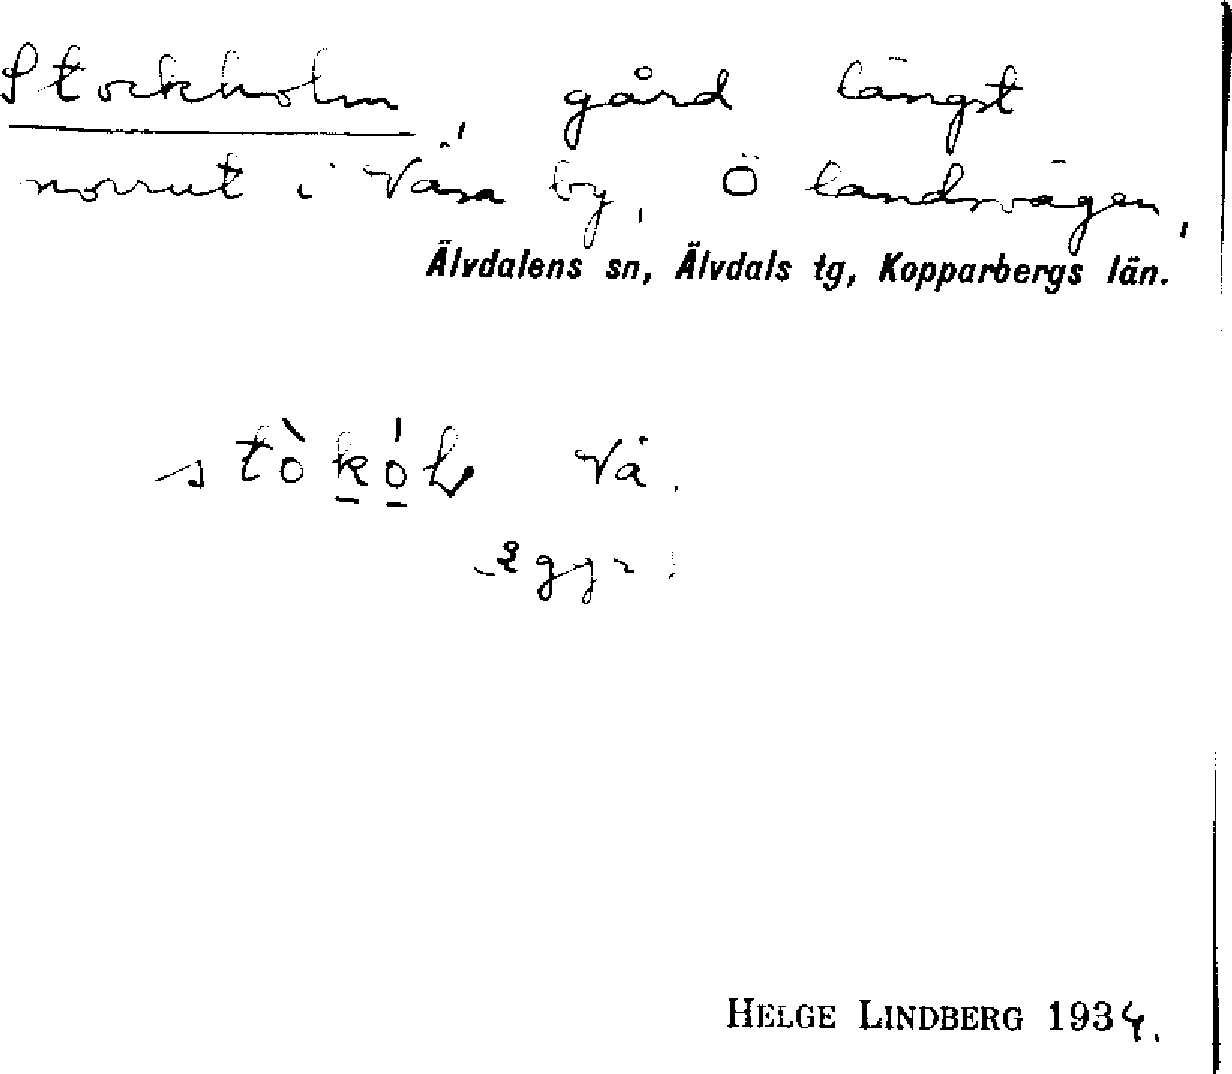 Stockholm, gård längst
norrut i Väsa by, Ö landsvägen,
Älvdalens sn, Älvdals tg, Kopparbergs län.
Vä.
HELGE LINDBERG 1934.